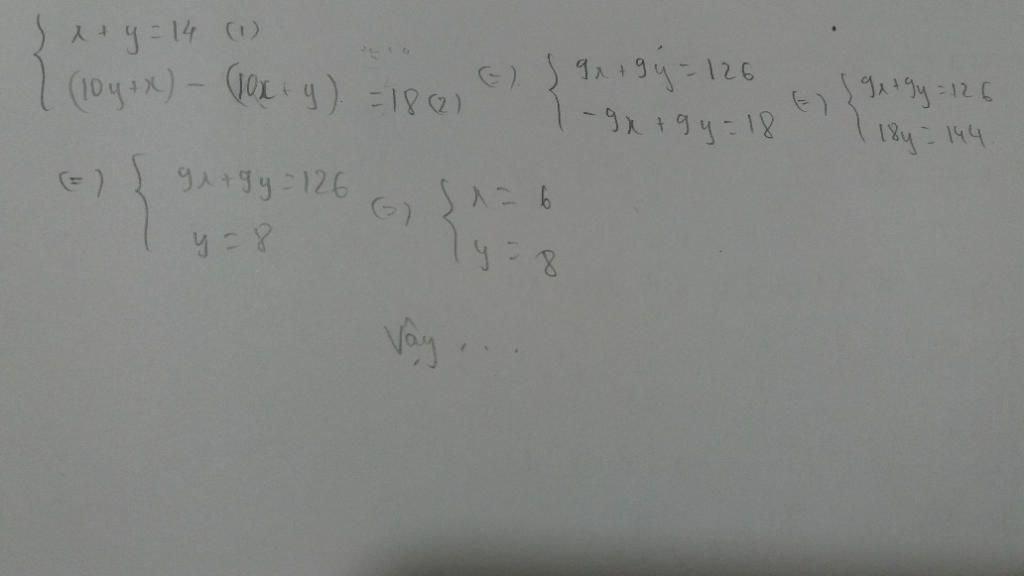 x + y = 14 (1)
(10y + x) - (10x + y) = 18 (2)
(=) 9x + 9y = 126
-9x + 9y = 18
(=) 9x + 9y = 126
18y = 144
(=) 9x + 9y = 126
y = 8
(=) x = 6
y = 8
Vậy ...